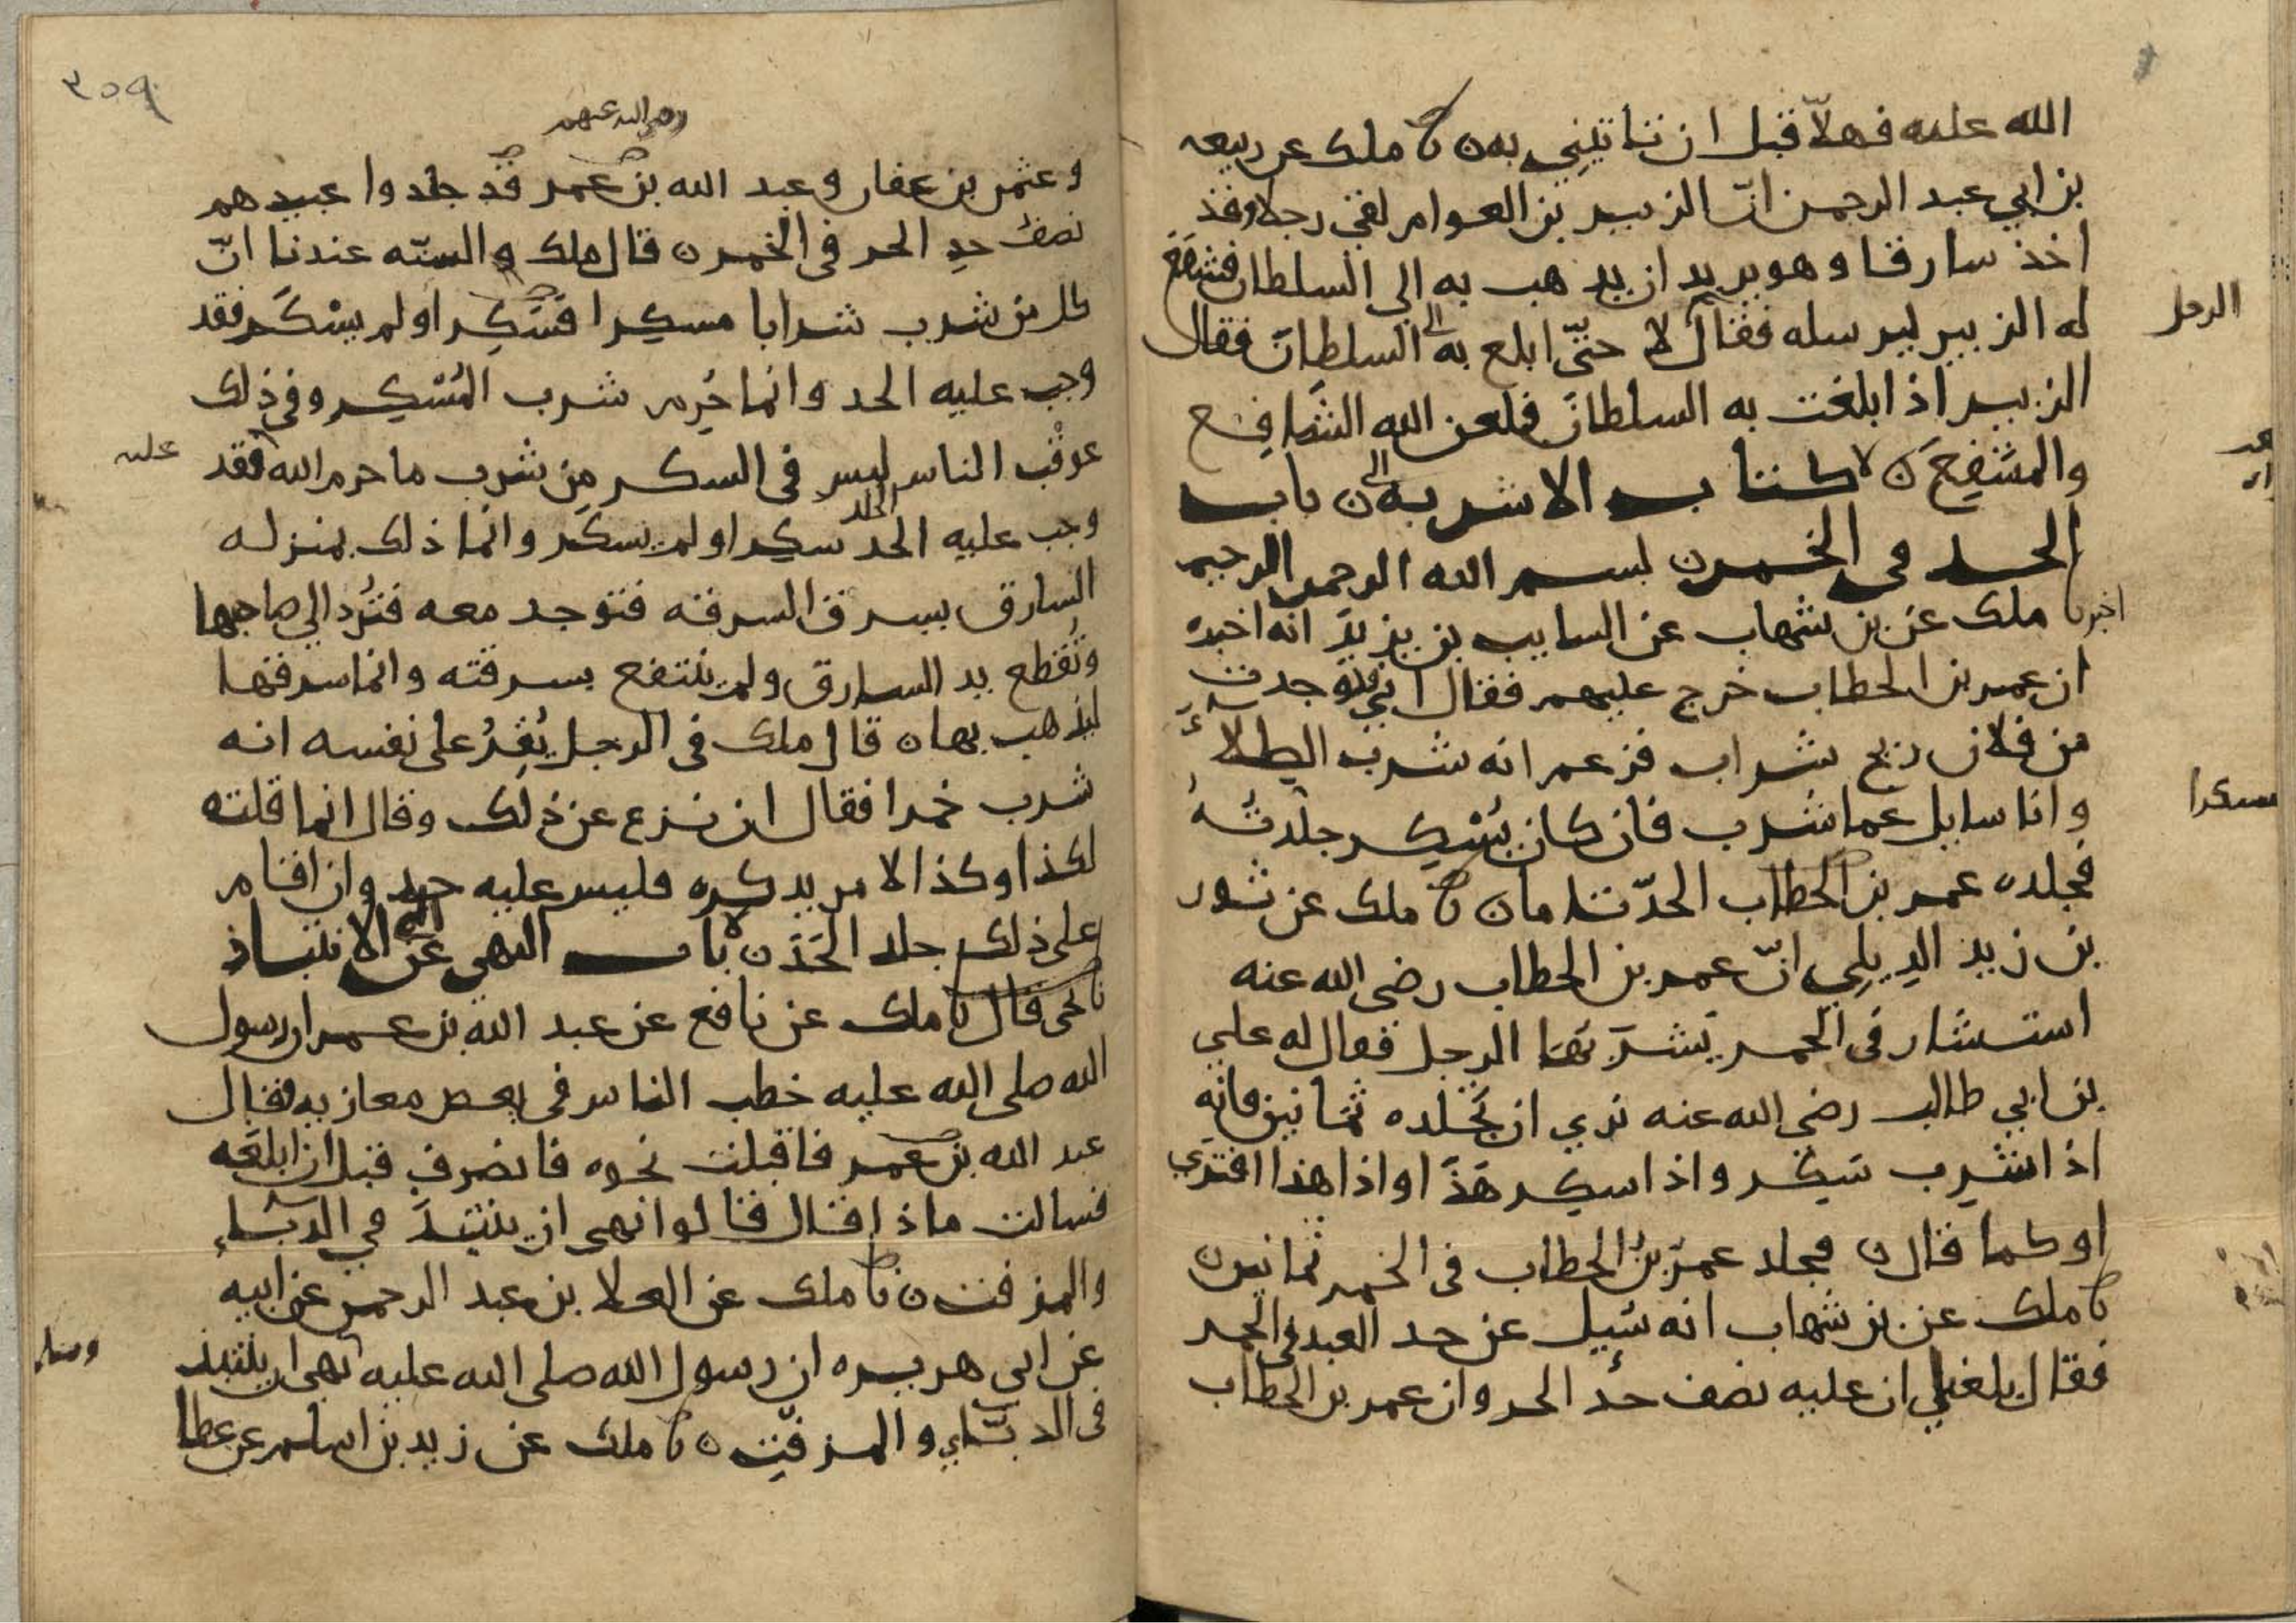 الله عليه فهلّا قبل ان تاتيني به ٥ نا ملك عن ربيعه
بن ابي عبد الرحمن انّ الزبير بن العوام لقي رجلا وقد
اخذ سارقا وهو يريد ان يذهب به الى السلطان فشفع
له الزبير ليرسله فقال لا حتّى ابلغ به السلطانَ فقال
الرجل
الزبير اذا بلغت به السلطانَ فلعن الله الشافِع
والمشفِّعَ ٥ كتاب الاشربه ٥ باب
الحد في الخمر ٥ بسم الله الرحمن الرحيم
اخبرنا ملك عن بن شهاب عن السايب بن يزيدَ انه اخبره
ان عمر بن الخطاب خرج عليهم فقال اني وجدت
من فلان ريح شراب فزعم انه شرب الطِلاءَ
وانا سايل عما شرب فان كان يُسْكِر جلدتُهُ
مسكرا
فجلده عمر بن الخطاب الحدّ تاما ٥ نا ملك عن ثور
بن زيد الدِيلِي انّ عمر بن الخطاب رضي الله عنه
استشار في الخمر يَشرَبهَا الرجل فقال له علي
بن ابي طالب رضي الله عنه نري ان تَجْلده ثمانين فانه
اذا شرِب سَكِر واذا سكِر هَذَا او اذا هذا افترَي
او كما قال ٥ فجلد عمرُ بنُ الخطاب في الخمر ثمانين ٥
نا ملك عن بن شهاب انه سُيِل عن حد العبد في الخمر
فقال بلغني ان عليه نصف حدّ الحر وان عمر بن الخطاب
٣٥٩
رضي الله عنهم
وعثمن بن عفان وعبد الله بن عمر قد جلدوا عبيدهم
نصفَ حدِ الحر في الخمر ٥ قال ملك والسنّه عندنا انّ
كل من شرب شرابا مسكِرا فسَكِر او لم يسْكَر فقد
وجب عليه الحد وانما حُرِم شرب المُسْكِر وفي ذلك
عوقب الناس ليس في السكر مِن شرب ما حرم الله فقد
عليه
وجب عليه الحد سكِر او لم يسكَر وانما ذلك بمنزله
الجلد
السارق يسرق السرقه فتوجد معه فتُرد الي صاحبها
وتُقطع يد السارق ولم ينتفع بسرقته وانما سرقها
ليذهب بها ٥ قال ملك في الرجل يُقِرُ على نفسه انه
شرب خمرا فقال ان نزع عن ذلك وقال انما قلته
لكذا وكذا لامر يذكره فليس عليه حد وان اقام
علي ذلك جلد الحَدَ ٥ باب النهي عن الانتباذ
نا يحي قال نا ملك عن نافع عن عبد الله بن عمر ان رسول
الله صلى الله عليه خطب الناس في بعض مغازيه فقال
عبد الله بن عمر فاقبلت نحوه فانصرف قبل ان ابلغَه
فسالت ماذا قال قالوا نهى ان ينتبذَ في الدبّاءِ
والمزفت ٥ نا ملك عن العلا بن عبد الرحمن عن ابيه
عن ابي هريره ان رسول الله صلى الله عليه نهى ان ينتبذ
وسلم
في الدبّاءِ والمزفّتِ ٥ نا ملك عن زيد بن اسلم عن عطا